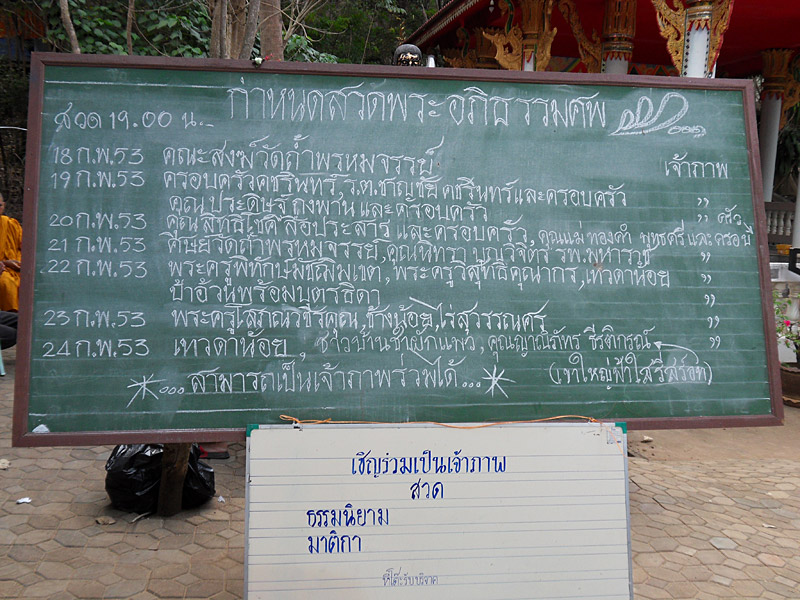 กำหนดสวดพระอภิธรรมศพ
สวด 19.00 น.
18 ก.พ.53 คณะสงฆ์วัดถ้ำพรหมจรรย์ เจ้าภาพ
19 ก.พ.53 ครอบครัวคชรินทร์, ร.ต.ชาญชัย คชรินทร์และครอบครัว ,,
คุณประดิษฐ์ และครอบครัว ,,
20 ก.พ.53 คุณสิทธิโชค สื่อประสาร และครอบครัว, คุณแม่ทองคำ พุทธศรี และครอบครัว
21 ก.พ.53 ศิษย์วัดถ้ำพรหมจรรย์, คุณนิทรา บุญวิจิตร รพ.มหาราช ,,
22 ก.พ.53 พระครูพิทักษ์มัชฌิมเขต, พระครูวิสุทธิคุณากร, เทวดาน้อย ,,
ป้าอ้วนพร้อมบุตรธิดา ,,
23 ก.พ.53 พระครูโสภณวชิรคุณ, ช้างน้อย, ไร่สุวรรณศร ,,
24 ก.พ.53 เทวดาน้อย, ชาวบ้านซำผักแพว, คุณญาณิภัทร ธีรติกรณ์ ,,
...สามารถเป็นเจ้าภาพร่วมได้... (เขาใหญ่ฟ้าใสรีสอร์ท)
เชิญร่วมเป็นเจ้าภาพ
สวด
ธรรมนิยาม
มาติกา
ที่โต๊ะรับบริจาค